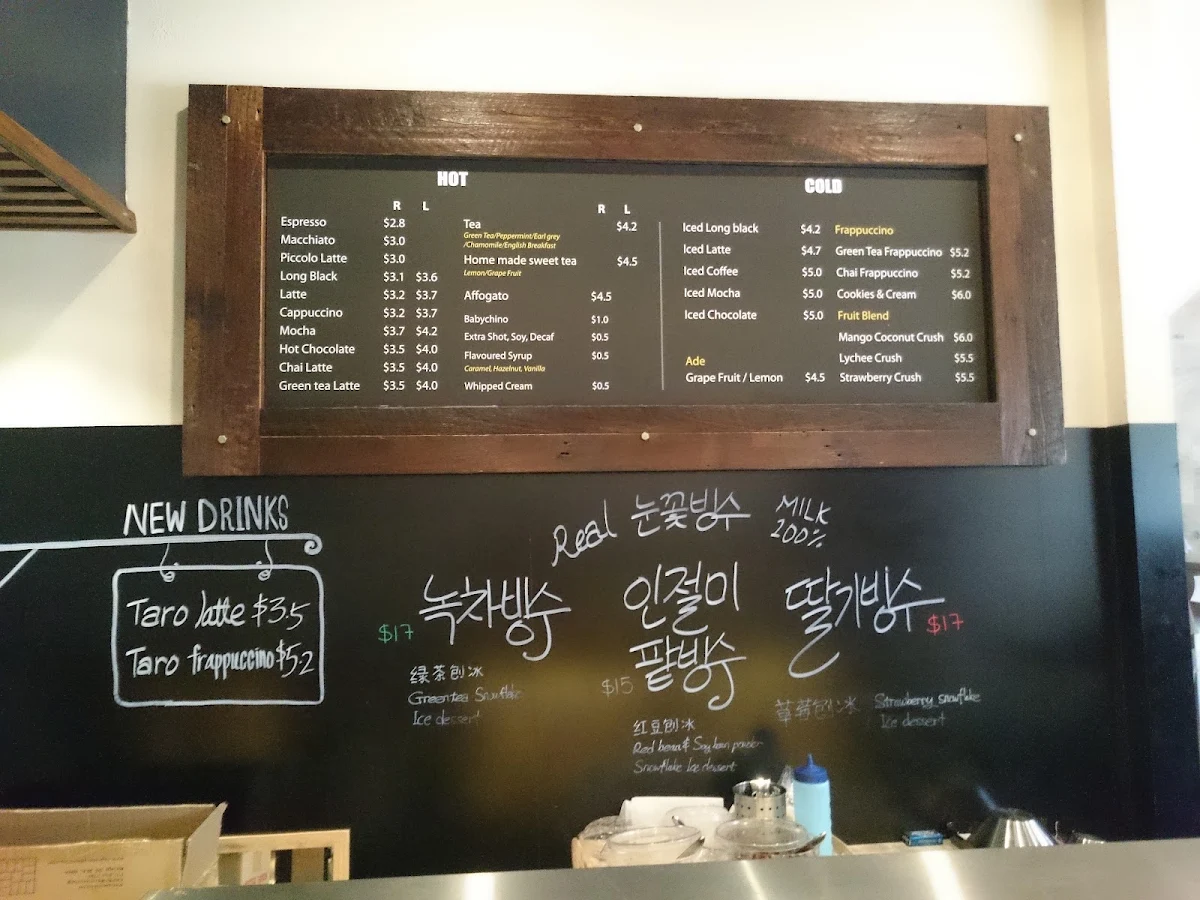 HOT
R L
Espresso $2.8
Macchiato $3.0
Piccolo Latte $3.0
Long Black $3.1 $3.6
Latte $3.2 $3.7
Cappuccino $3.2 $3.7
Mocha $3.7 $4.2
Hot Chocolate $3.5 $4.0
Chai Latte $3.5 $4.0
Green tea Latte $3.5 $4.0
R L
Tea $4.2
Green Tea/Peppermint/Earl grey
/Chamomile/English Breakfast
Home made sweet tea $4.5
Lemon/Grape Fruit
Affogato $4.5
Babychino $1.0
Extra Shot, Soy, Decaf $0.5
Flavoured Syrup $0.5
Caramel, Hazelnut, Vanilla
Whipped Cream $0.5
COLD
Iced Long black $4.2
Iced Latte $4.7
Iced Coffee $5.0
Iced Mocha $5.0
Iced Chocolate $5.0
Ade
Grape Fruit / Lemon $4.5
Frappuccino
Green Tea Frappuccino $5.2
Chai Frappuccino $5.2
Cookies & Cream $6.0
Fruit Blend
Mango Coconut Crush $6.0
Lychee Crush $5.5
Strawberry Crush $5.5
NEW DRINKS
Taro latte $3.5
Taro frappuccino $5.2
Real 눈꽃빙수 MILK
200%
녹차빙수
$17
绿茶刨冰
Greentea Snowflake
Ice dessert
인절미
팥빙수
$15
红豆刨冰
Red bean & Soy bean powder
Snowflake Ice dessert
딸기빙수
$17
草莓刨冰
Strawberry snowflake
Ice dessert